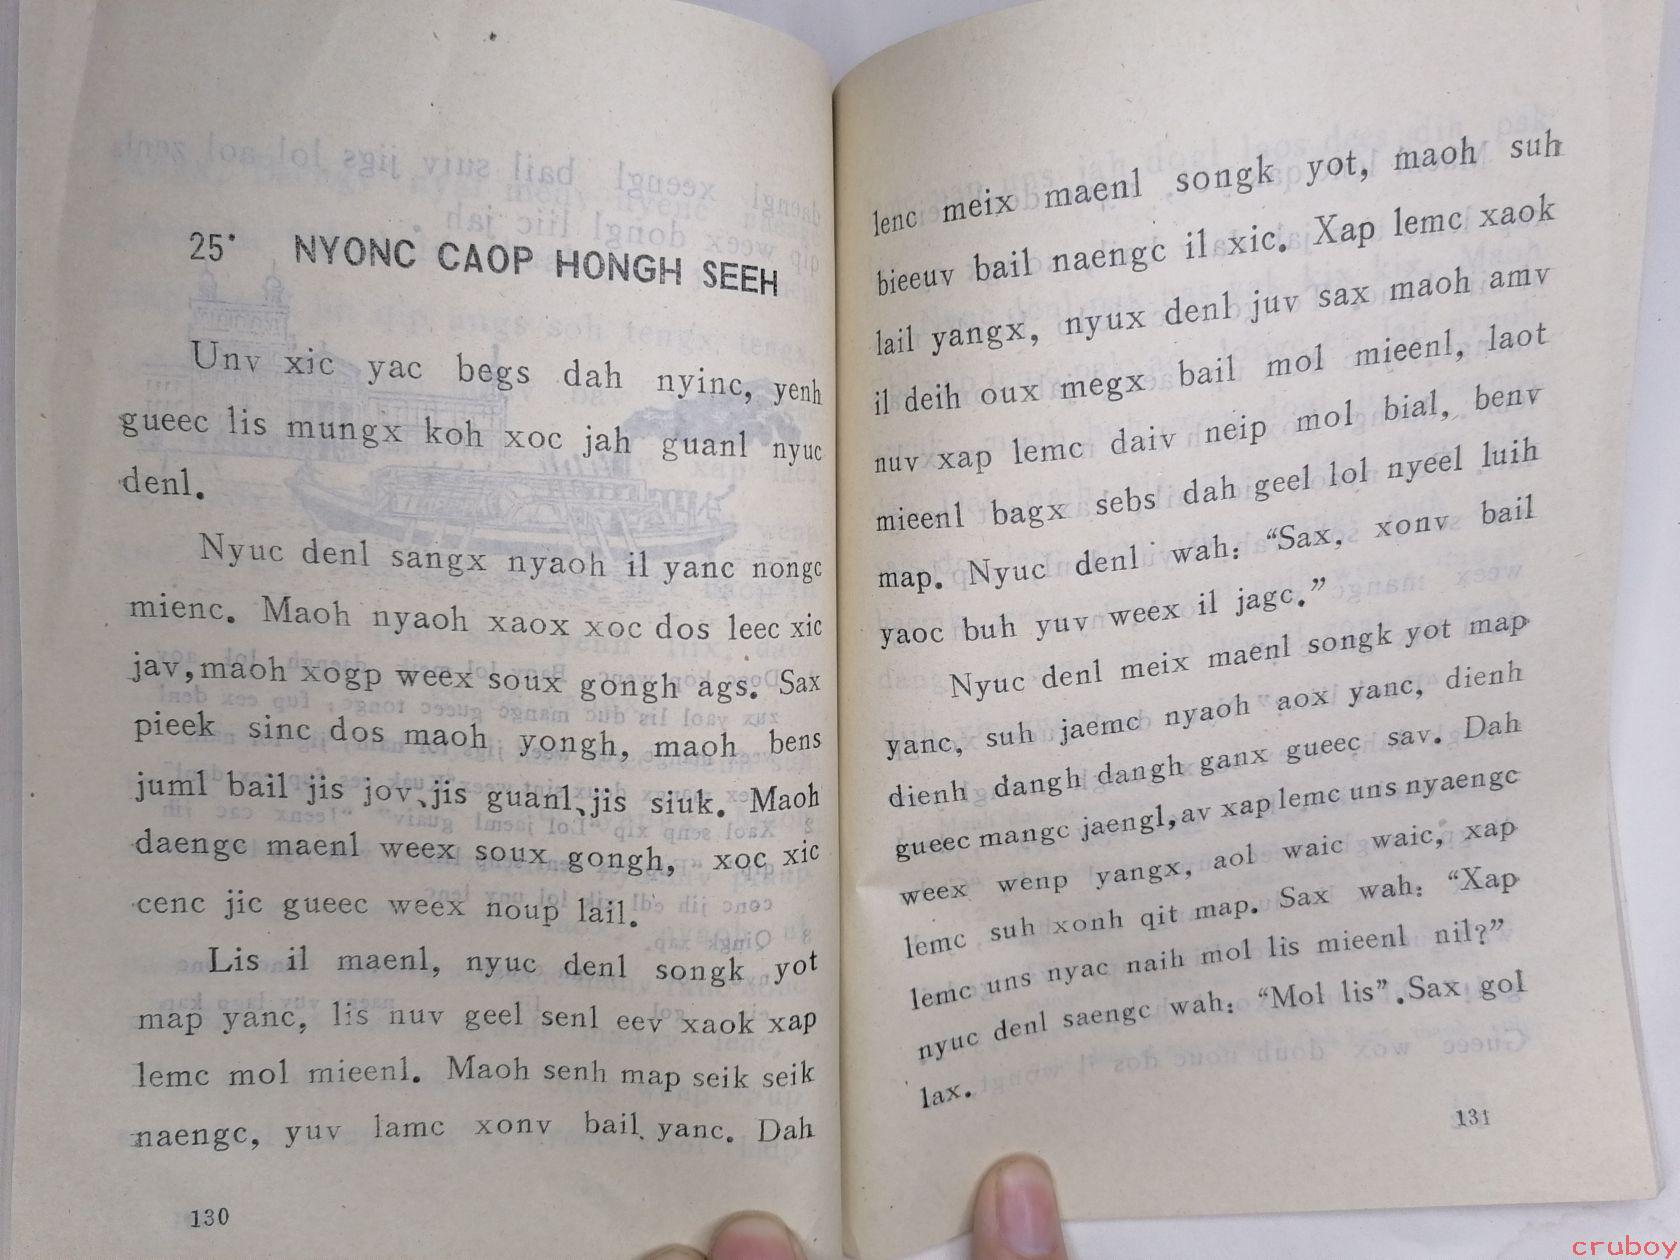 25. NYONC CAOP HONGH SEEH
Unv xic yac begs dah nyinc, yenh
gueec lis mungx koh xoc jah guanl nyuc
denl.
Nyuc denl sangx nyaoh il yanc nongc
mienc. Maoh nyaoh xaox xoc dos leec xic
jav, maoh xogp weex soux gongh ags. Sax
pieek sinc dos maoh yongh, maoh bens
juml bail jis jov、jis guanl、jis siuk. Maoh
daengc maenl weex soux gongh, xoc xic
cenc jic gueec weex noup lail.
Lis il maenl, nyuc denl songk yot
map yanc, lis nuv geel senl eev xaok xap
lemc mol mieenl. Maoh senh map seik seik
naengc, yuv lamc xonv bail yanc. Dah
130
lenc meix maenl songk yot, maoh suh
bieeuv bail naengc il xic. Xap lemc xaok
lail yangx, nyux denl juv sax maoh amv
il deih oux megx bail mol mieenl, laot
nuv xap lemc daiv neip mol bial, benv
mieenl bagx sebs dah geel lol nyeel luih
map. Nyuc denl wah: “Sax, xonv bail
yaoc buh yuv weex il jagc.”
Nyuc denl meix maenl songk yot map
yanc, suh jaemc nyaoh aox yanc, dienh
dienh dangh dangh ganx gueec sav. Dah
gueec mangc jaengl, av xap lemc uns nyaengc
weex wenp yangx, aol waic waic, xap
lemc suh xonh qit map. Sax wah: “Xap
lemc uns nyac naih mol lis mieenl nil?”
nyuc denl saengc wah: “Mol lis”. Sax gol
lax.
131
cruboy